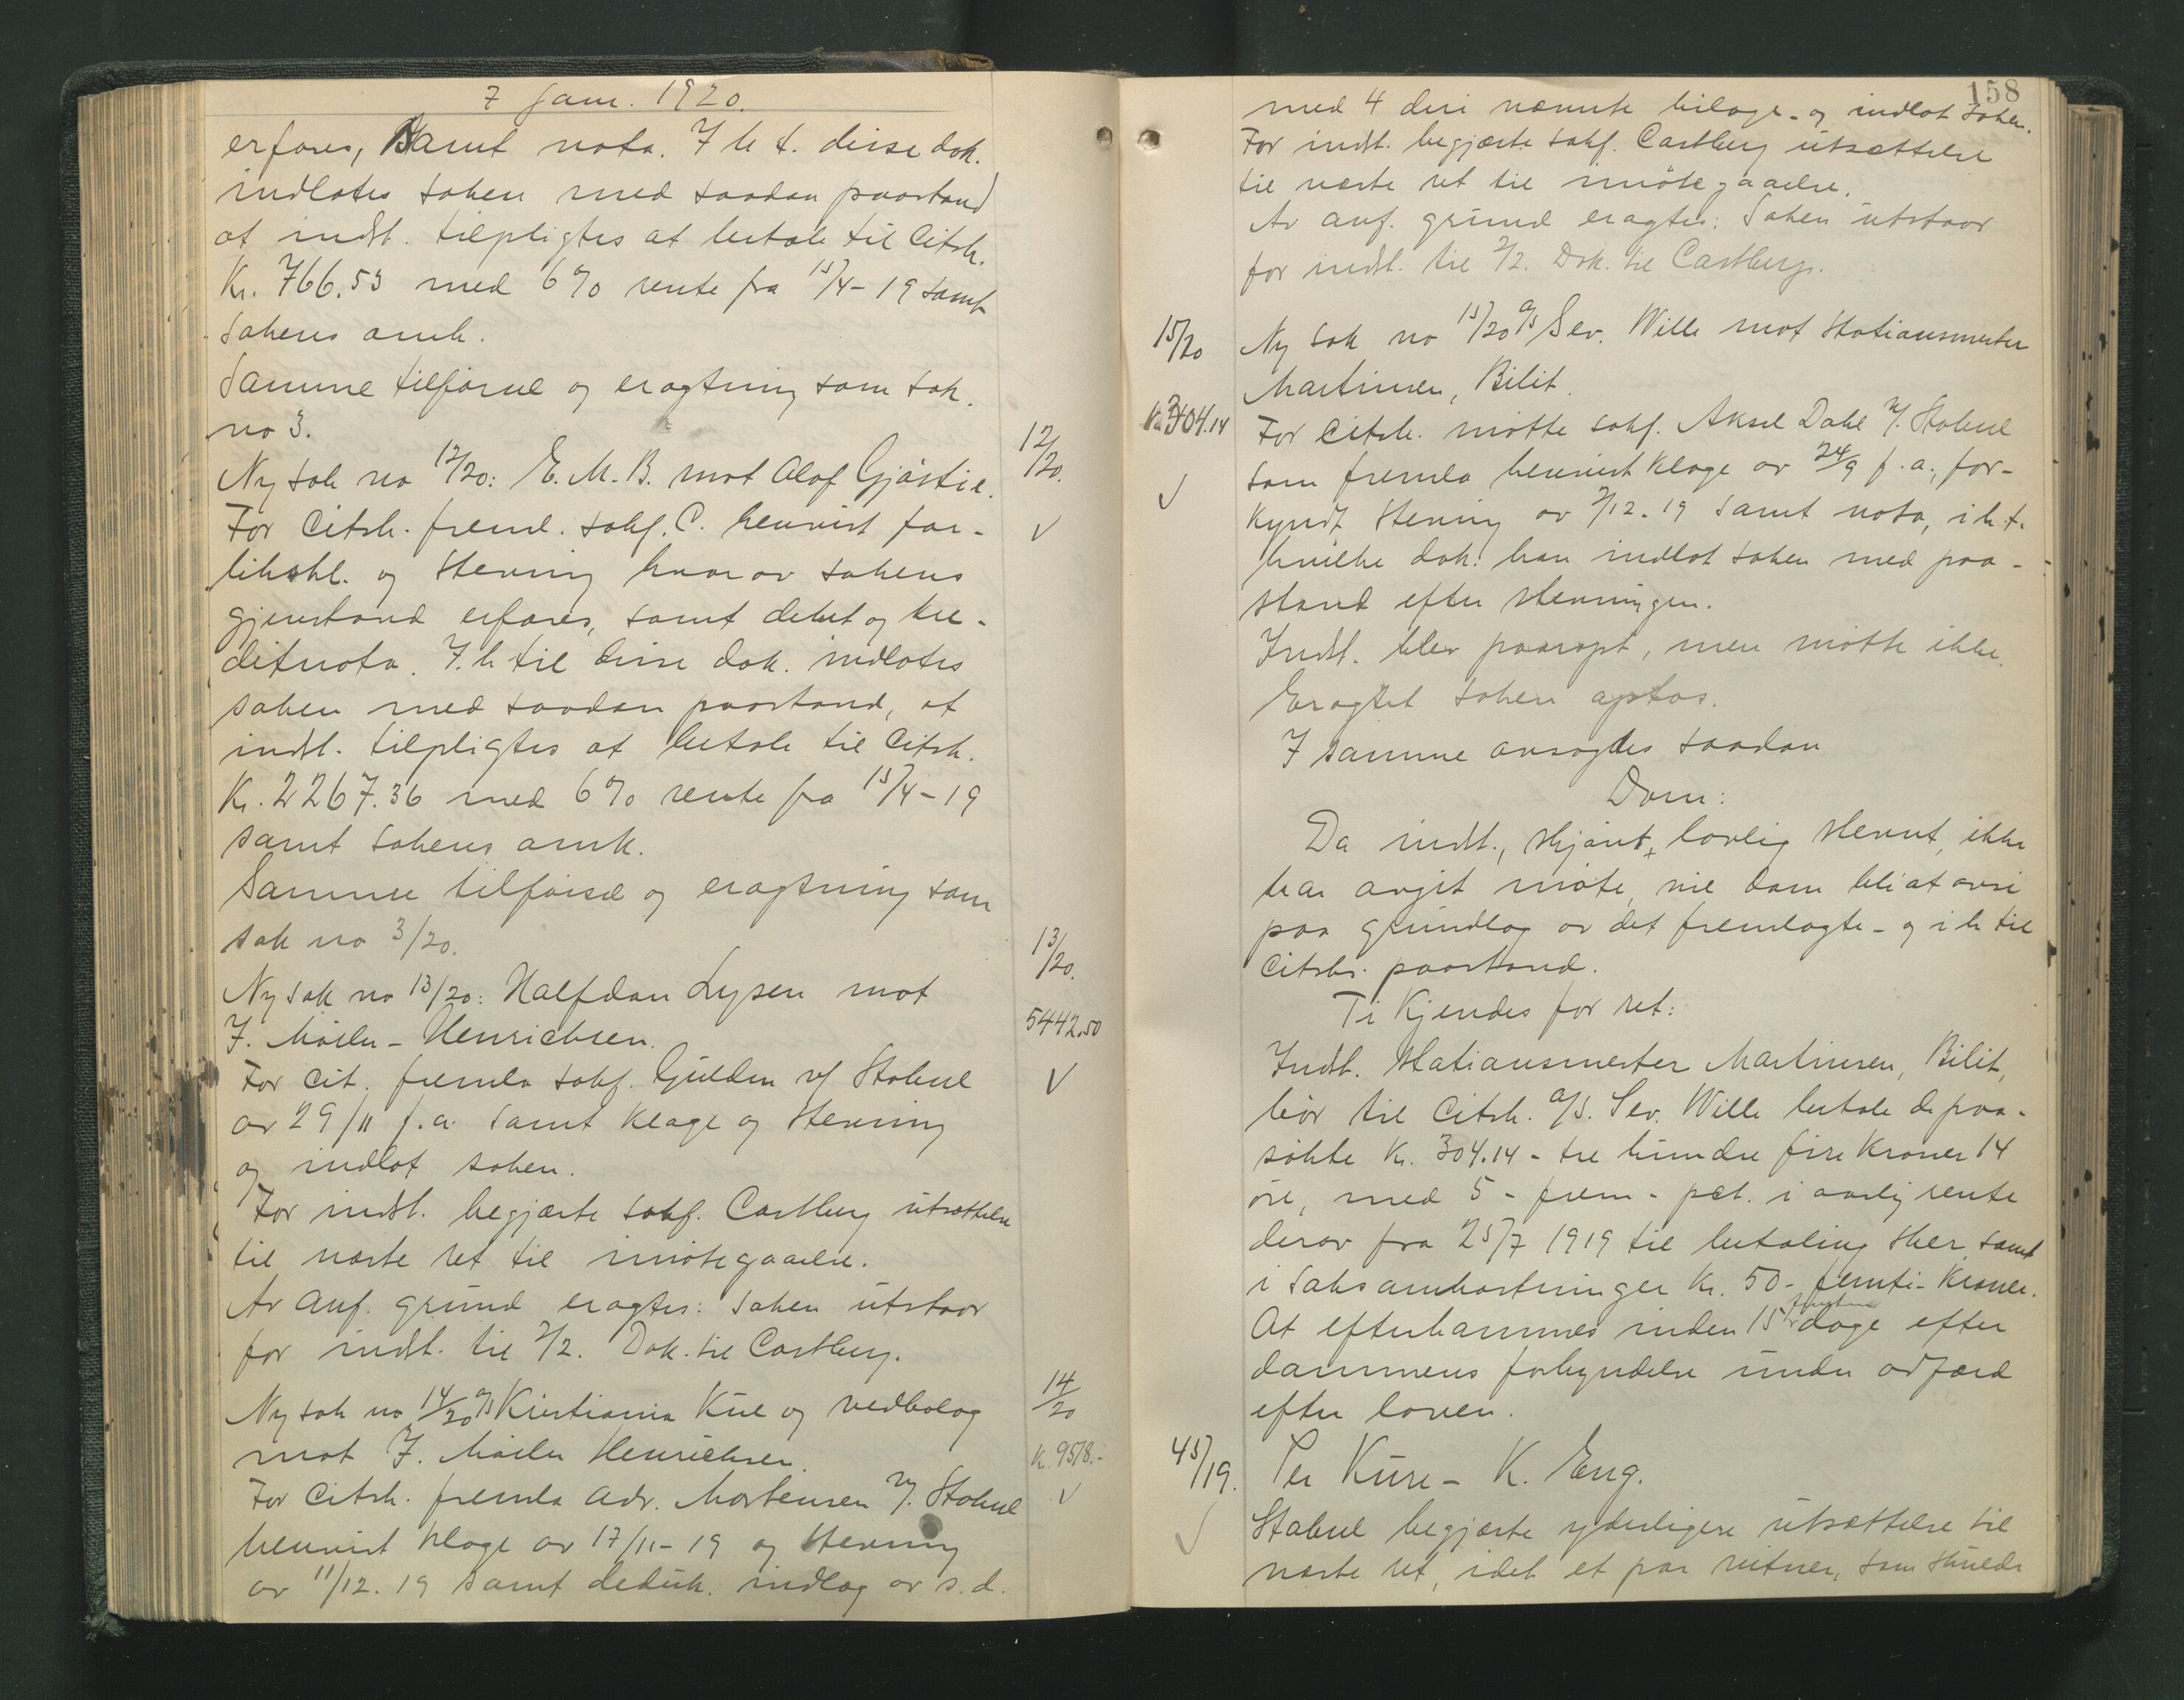 7 Janr. 1920.
erfares, samt nota. I h. t. disse dok.
indlates saken med saadan paastand
at indst. tilpligtes at betale til Citsk.
Kr. 766.53 med 6% rente fra 15/4-19 samt
Sakens omk.
Samme tilførsel og eragtning som sak.
no 3.
Ny sak no 12/20: E. M. B. mot Olaf Gjøstie.
For Citsk. freml. sakf. C. henvist for-
likskl. og stevning hvorav sakens
gjenstand erfares, samt debet og kre-
ditnota. I. h. til disse dok. indlates
saken med saadan paastand, at
indst. tilpligtes at betale til Citsk.
Kr. 2267.36 med 6% rente fra 15/4-19
samt sakens omk.
Samme tilførsel og eragtning som
sak no 3/20.
Ny sak no 13/20: Halfdan Lysen mot
J. Møiler-Henrichsen.
For cit. fremla sakf. Gulden v/ Stabul
av 29/11 f.a. samt klage og stevning
og indlot saken.
For indst. begjærte sakf. Castberg utsættelse
til næste ret til imøtegaaelse.
Av anf. grund eragtes: Saken utstaar
for indst. til 2/2. Dok. til Castberg.
Ny sak no 14/20 a/s Kristiania Kul og vedbolag
mot J. Møiler Henrichsen.
For Citsk. fremla adv. Mortensen v/. Stabul
henvist klage av 17/11-19 og stevning
av 11/12.19 samt deduk. indlæg av s.d.
12/20.
V
13/20.
5442.50
V
14/20
K. 9578.-
V
158
med 4 deri nævnte bilage - og indlot saken.
For indst. begjærte sakf. Castberg utsættelse
til næste ret til imøtegaaelse.
Av anf. grund eragtes: Saken utstaar
for indst. til 2/2. Dok. til Castberg.
15/20
Ny sak no 15/20 a/s Sev. Wille mot Stationsmester
Martinsen, Bilit.
Kr. 304.14
For Citsk. møtte sakf. Aksel Dahl v/. Stabul
V
som fremla henvist klage av 24/9 f.a., for-
kyndt stevning av 2/12.19 samt nota, i h. t.
hvilke dok. han indlot saken med paa-
stand efter stevningen.
Indst. blev paaropt, men møtte ikke.
Eragtet saken optas.
I samme avsagdes saadan
Dom:
Da indst., skjønt lovlig stevnt, ikke
har avgit møte, vil dom bli at avsi
paa grundlag av det fremlagte - og i h. til
Citsks. paastand.
Ti Kjendes for ret:
Indst. Stationsmester Martinsen, Bilit,
bør til Citsk. a/s. Sev. Wille betale de paa-
søkte Kr. 304.14 - tre hundre fire Kroner 14
øre, med 5 - fem - pct. i aarlig rente
derav fra 25/7 1919 til betaling sker, samt
i Saksomkostninger Kr. 50 - femti - Kroner.
At efterkommes inden 15 femten dage efter
dommens forkyndelse under adfærd
efter loven.
45/19.
Per Kure - K. Eng.
V
Stabul begjærte yderligere utsættelse til
næste ret, idet et par vitner, som skulde